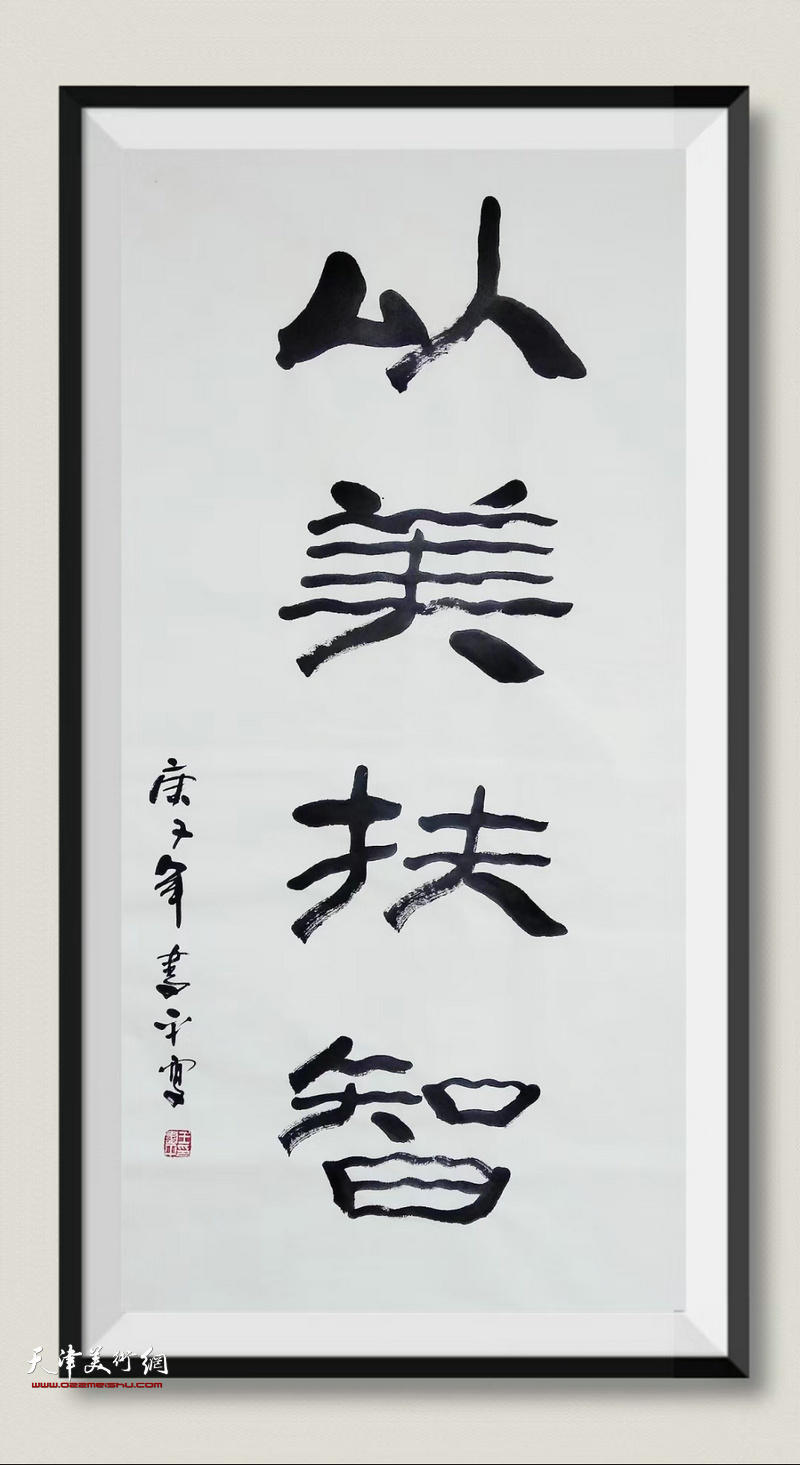 以美扶智
庚子年书平写
天津美術網
www.022meishu.com